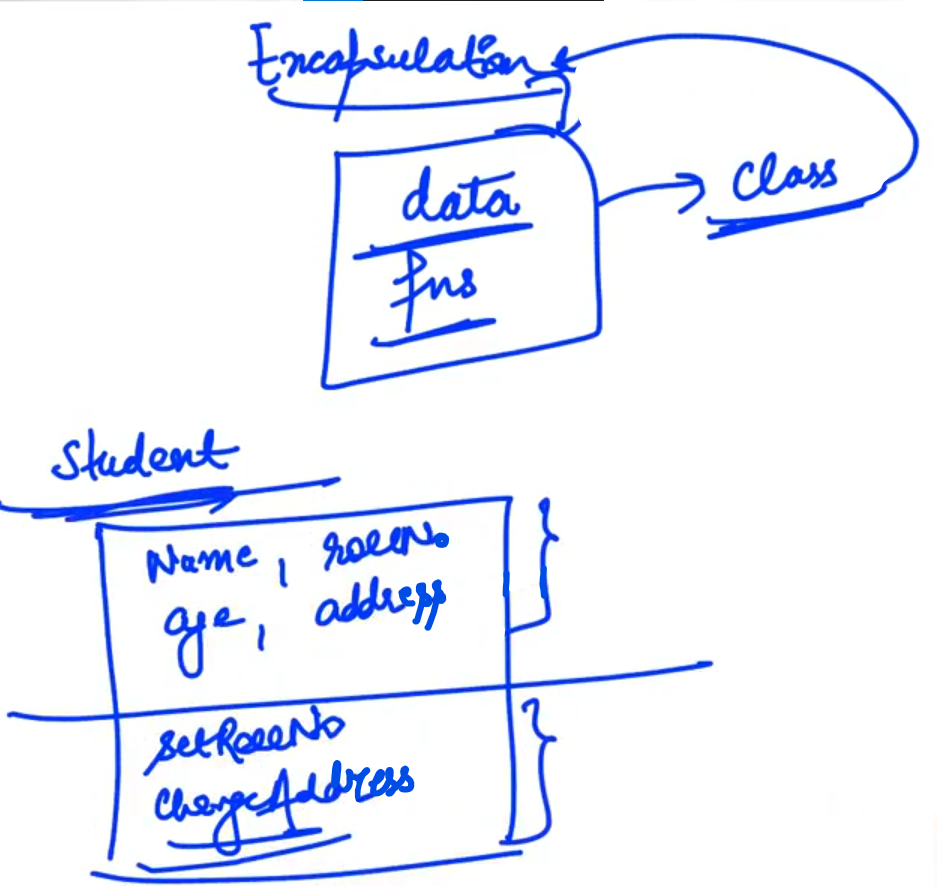 Encapsulation
data
fns
class
Student
Name, rollNo
age, address
setRollNo
changeAddress